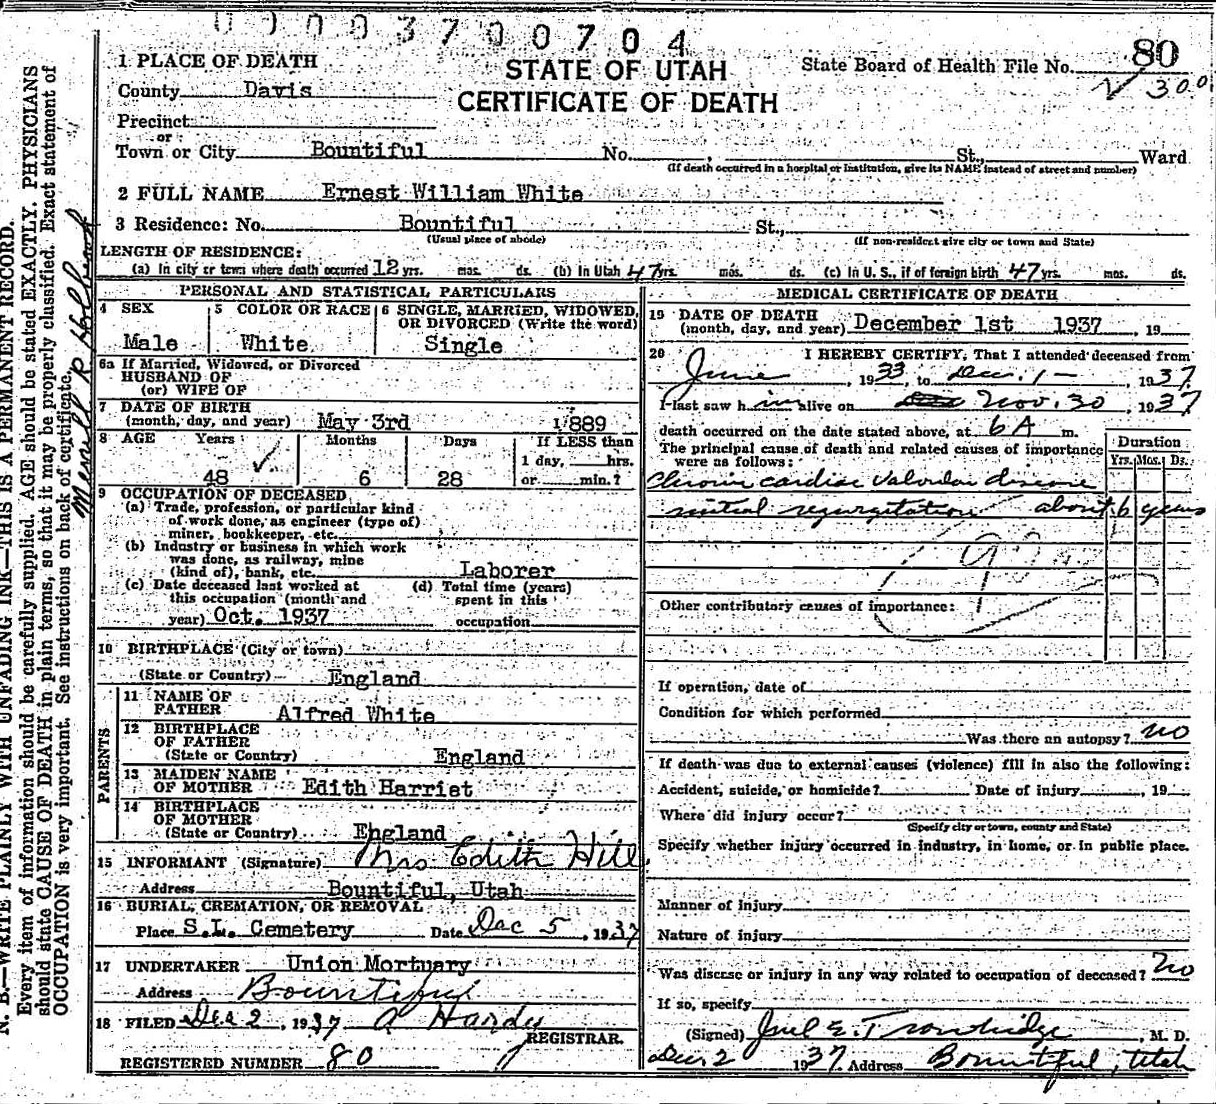 00003700704
80
STATE OF UTAH
CERTIFICATE OF DEATH
State Board of Health File No.
300
1 PLACE OF DEATH
County Davis
Precinct
or
Town or City Bountiful No. St., Ward
(If death occurred in a hospital or institution, give its NAME instead of street and number)
2 FULL NAME Ernest William White
3 Residence: No. Bountiful St.,
(Usual place of abode) (If non-resident give city or town and State)
LENGTH OF RESIDENCE:
(a) In city or town where death occurred 12 yrs. mos. ds. (b) In Utah 47 yrs. mos. ds. (c) In U. S., if of foreign birth 47 yrs. mos. ds.
PERSONAL AND STATISTICAL PARTICULARS
4 SEX
Male
5 COLOR OR RACE
White
6 SINGLE, MARRIED, WIDOWED, OR DIVORCED (Write the word)
Single
6a If Married, Widowed, or Divorced
HUSBAND OF
(or) WIFE OF
7 DATE OF BIRTH
(month, day, and year) May 3rd 1889
8 AGE Years Months Days If LESS than
1 day, hrs.
48 6 28 or min.?
9 OCCUPATION OF DECEASED
(a) Trade, profession, or particular kind
of work done, as engineer (type of)
miner, bookkeeper, etc.
(b) Industry or business in which work
was done, as railway, mine
(kind of), bank, etc. Laborer
(c) Date deceased last worked at
this occupation (month and
year) Oct. 1937
(d) Total time (years)
spent in this
occupation
10 BIRTHPLACE (City or town)
(State or Country) England
PARENTS
11 NAME OF
FATHER Alfred White
12 BIRTHPLACE
OF FATHER
(State or Country) England
13 MAIDEN NAME
OF MOTHER Edith Harriet
14 BIRTHPLACE
OF MOTHER
(State or Country) England
15 INFORMANT (Signature) Mrs Edith Hill
Address Bountiful, Utah
16 BURIAL, CREMATION, OR REMOVAL
Place S.L. Cemetery Date Dec 5, 1937
17 UNDERTAKER Union Mortuary
Address Bountiful
18 FILED Dec 2, 1937 A Hardy
REGISTRAR.
REGISTERED NUMBER 80
MEDICAL CERTIFICATE OF DEATH
19 DATE OF DEATH
(month, day, and year) December 1st 1937, 19
20 I HEREBY CERTIFY, That I attended deceased from
June, 1933, to Dec. 1 -, 1937
I last saw him alive on Nov. 30, 1937
death occurred on the date stated above, at 6 A m.
The principal cause of death and related causes of importance
were as follows:
Duration
Yrs. Mos. Ds.
Chronic cardiac valvular disease
mitral regurgitation about 6 years
Other contributory causes of importance:
If operation, date of
Condition for which performed
Was there an autopsy? no
If death was due to external causes (violence) fill in also the following:
Accident, suicide, or homicide? Date of injury, 19
Where did injury occur?
(Specify city or town, county and State)
Specify whether injury occurred in industry, in home, or in public place.
Manner of injury
Nature of injury
Was disease or injury in any way related to occupation of deceased? no
If so, specify
(Signed) Joel E. Trowbridge, M. D.
Dec 2 1937. Address Bountiful, Utah
N. B.—WRITE PLAINLY WITH UNFADING INK—THIS IS A PERMANENT RECORD.
Every item of information should be carefully supplied. AGE should be stated EXACTLY. PHYSICIANS
should state CAUSE OF DEATH in plain terms, so that it may be properly classified. Exact statement of
OCCUPATION is very important. See instructions on back of certificate.